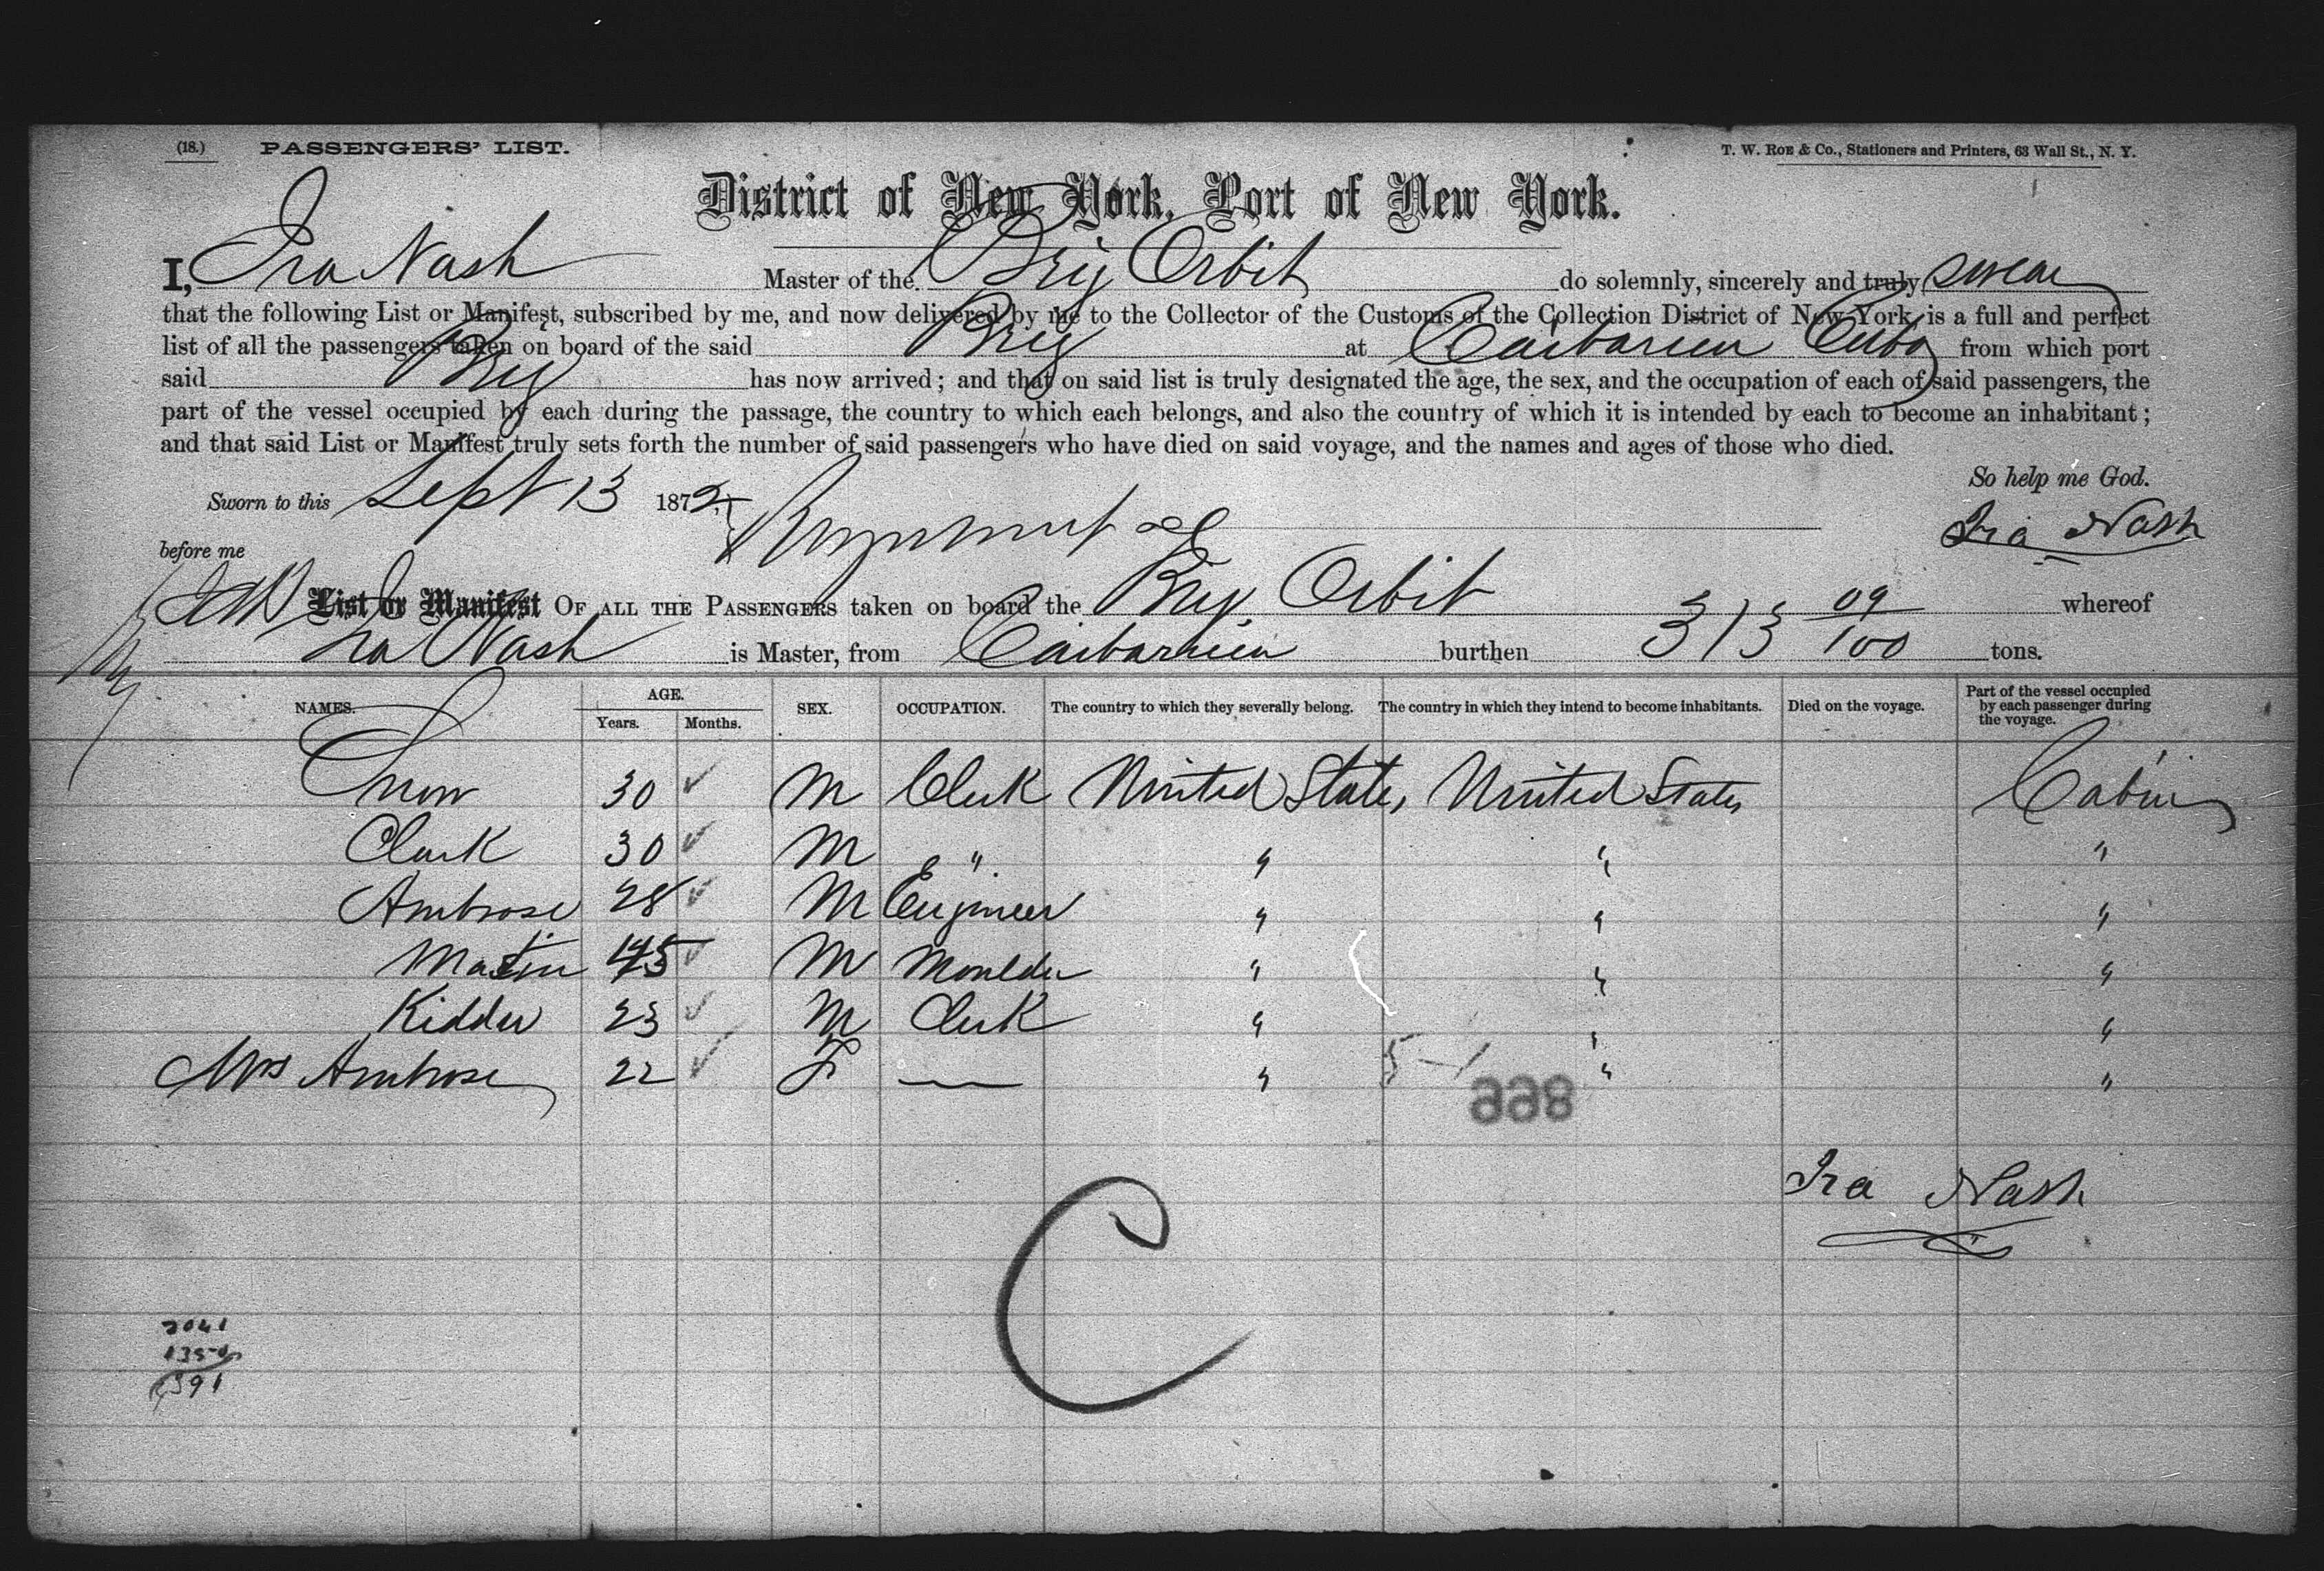 (18.) PASSENGERS' LIST. T. W. ROE & Co., Stationers and Printers, 63 Wall St., N. Y.
District of New York, Port of New York.
I, Ira Nash Master of the Brig Orbit do solemnly, sincerely and truly swear
that the following List or Manifest, subscribed by me, and now delivered by me to the Collector of the Customs of the Collection District of New York, is a full and perfect
list of all the passengers taken on board of the said Brig at Caibarien Cuba from which port
said Brig has now arrived; and that on said list is truly designated the age, the sex, and the occupation of each of said passengers, the
part of the vessel occupied by each during the passage, the country to which each belongs, and also the country of which it is intended by each to become an inhabitant;
and that said List or Manifest truly sets forth the number of said passengers who have died on said voyage, and the names and ages of those who died.
So help me God.
Sworn to this Sept 13 1872
Ira Nash
before me
List or Manifest OF ALL THE PASSENGERS taken on board the Brig Orbit whereof
Ira Nash is Master, from Caibarien burthen 313 09/100 tons.
NAMES. AGE. Years. Months. SEX. OCCUPATION. The country to which they severally belong. The country in which they intend to become inhabitants. Died on the voyage. Part of the vessel occupied by each passenger during the voyage.
Snow 30 M Clerk United States United States Cabin
Clark 30 M " " " "
Ambrose 28 M Engineer " " "
Martin 45 M Moulder " " "
Kidder 23 M Clerk " " "
Mrs Ambrose 22 F — " " "
Ira Nash
C
2041